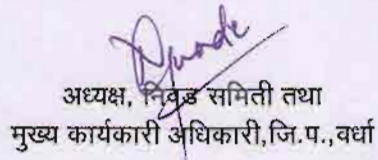 अध्यक्ष, निवड समिती तथा
मुख्य कार्यकारी अधिकारी,जि.प.,वर्धा